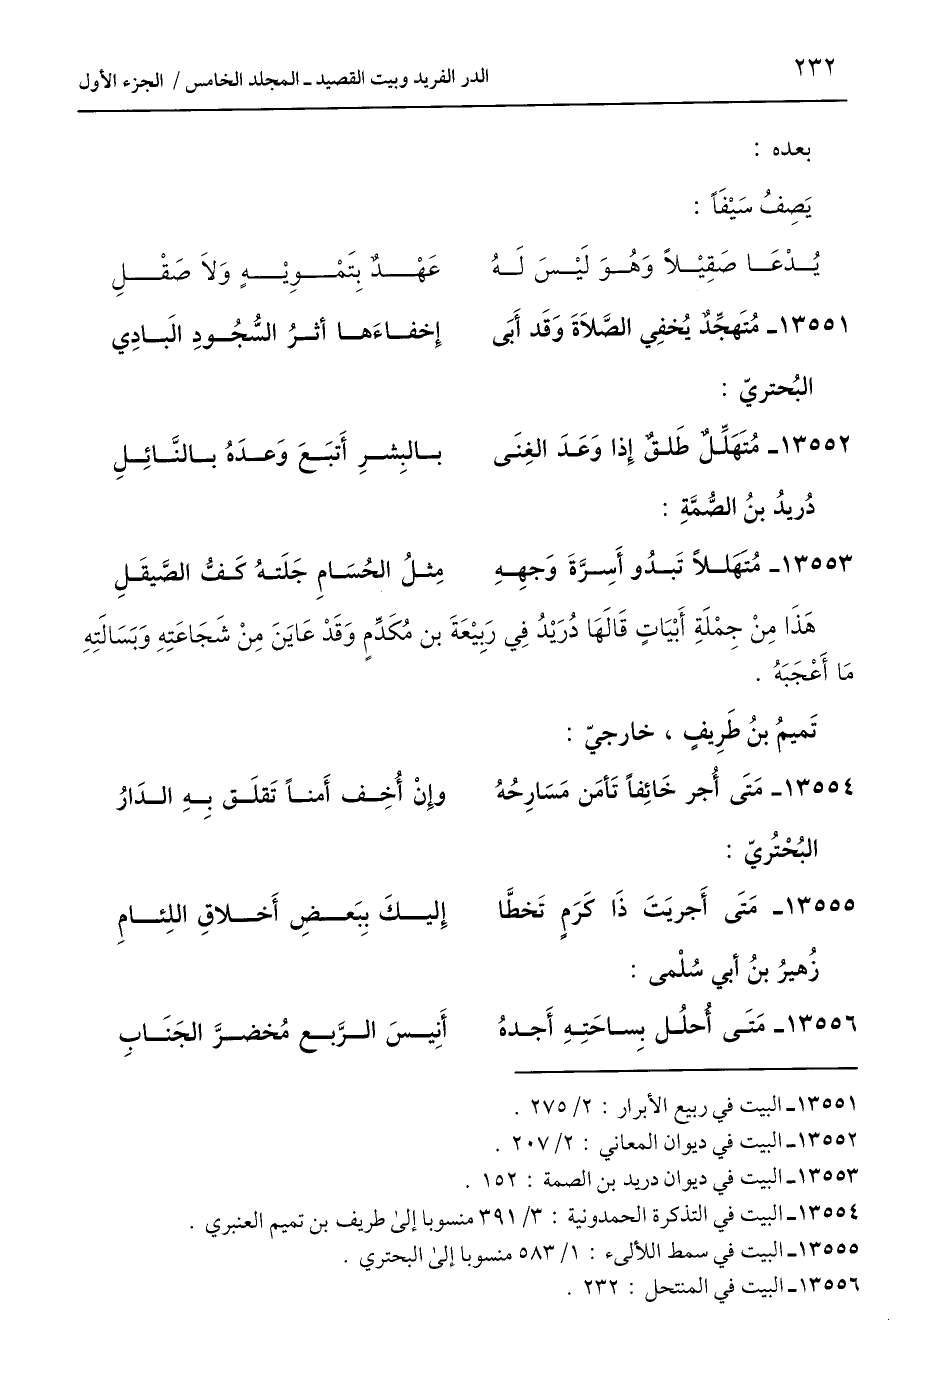 ٢٣٢
الدر الفريد وبيت القصيد ـ المجلد الخامس / الجزء الأول
بعده :
يَصِفُ سَيْفَاً :
يُـدْعَـا صَقِيْـلاً وَهُـوَ لَيْـسَ لَـهُ عَهْـدٌ بِتَمْـوِيْـهٍ وَلاَ صَقْـلِ
١٣٥٥١ـ مُتَهجِّدٌ يُخفِي الصَّلاَةَ وَقَد أَبَى إخفـاءَهـا أثـرُ السُّجُـودِ البَـادِي
البُحتريّ :
١٣٥٥٢ـ مُتَهَلِّلٌ طَلقٌ إذا وَعَدَ الغِنَى بـالبِشـرِ أَتبَـعَ وَعـدَهُ بـالنَّـائِـلِ
دُريدُ بنُ الصُّمَّةِ :
١٣٥٥٣ـ مُتَهَلـلاً تَبـدُو أَسِـرَّةَ وَجهِـهِ مِثـلُ الحُسَـامِ جَلَتـهُ كَـفُّ الصَّيقَـلِ
هَذَا مِنْ جِمْلَةِ أَبْيَاتٍ قَالَهَا دُرَيْدُ فِي رَبِيْعَةَ بن مُكَدِّمٍ وَقَدْ عَايَنَ مِنْ شَجَاعَتِهِ وَبَسَالَتِهِ
مَا أَعْجَبَهُ .
تَميمُ بنُ طَرِيفٍ ، خارجيّ :
١٣٥٥٤ـ مَتَى أُجر خَائِفاً تَأمَن مَسَارِحُهُ وإنْ أُخِـف أمنـاً تَقلَـق بِـهِ الـدَارُ
البُحْتُريّ :
١٣٥٥٥ـ مَتَى أَجريَتَ ذَا كَرَمٍ تَخطَّا إليـكَ بِبَعـضِ أَخـلاقِ اللِئـامِ
زُهيرُ بنُ أبي سُلْمى :
١٣٥٥٦ـ مَتَـى أُحلُـل بِسـاحَتِـهِ أجـدهُ أَنِيـسَ الـرَّبـع مُخضـرَّ الجَنَـابِ
١٣٥٥١ـ البيت في ربيع الأبرار : ٢/ ٢٧٥ .
١٣٥٥٢ـ البيت في ديوان المعاني : ٢/ ٢٠٧ .
١٣٥٥٣ـ البيت في ديوان دريد بن الصمة : ١٥٢ .
١٣٥٥٤ـ البيت في التذكرة الحمدونية : ٣/ ٣٩١ منسوبا إلى طريف بن تميم العنبري .
١٣٥٥٥ـ البيت في سمط اللألىء : ١/ ٥٨٣ منسوبا إلى البحتري .
١٣٥٥٦ـ البيت في المنتحل : ٢٣٢ .